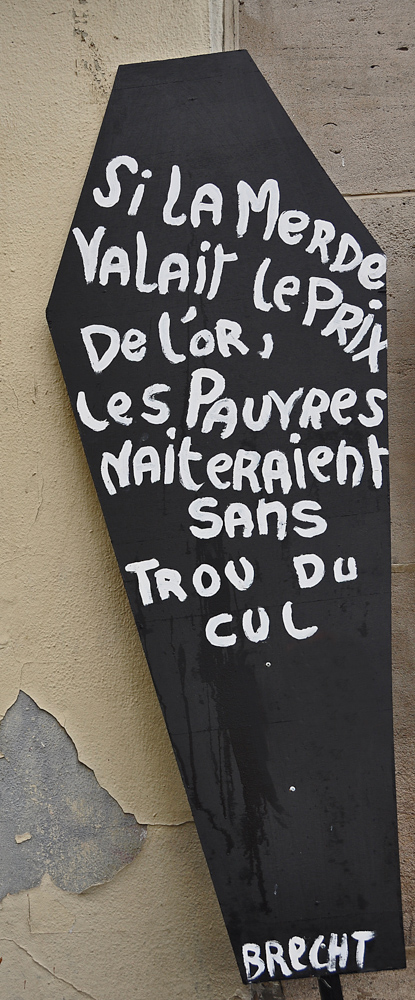 Si LA MerDe
VALAit Le PRiX
De L'OR,
Les PAUVRes
NAiteRAient
SAns
TROU DU
CUL
BReCHT